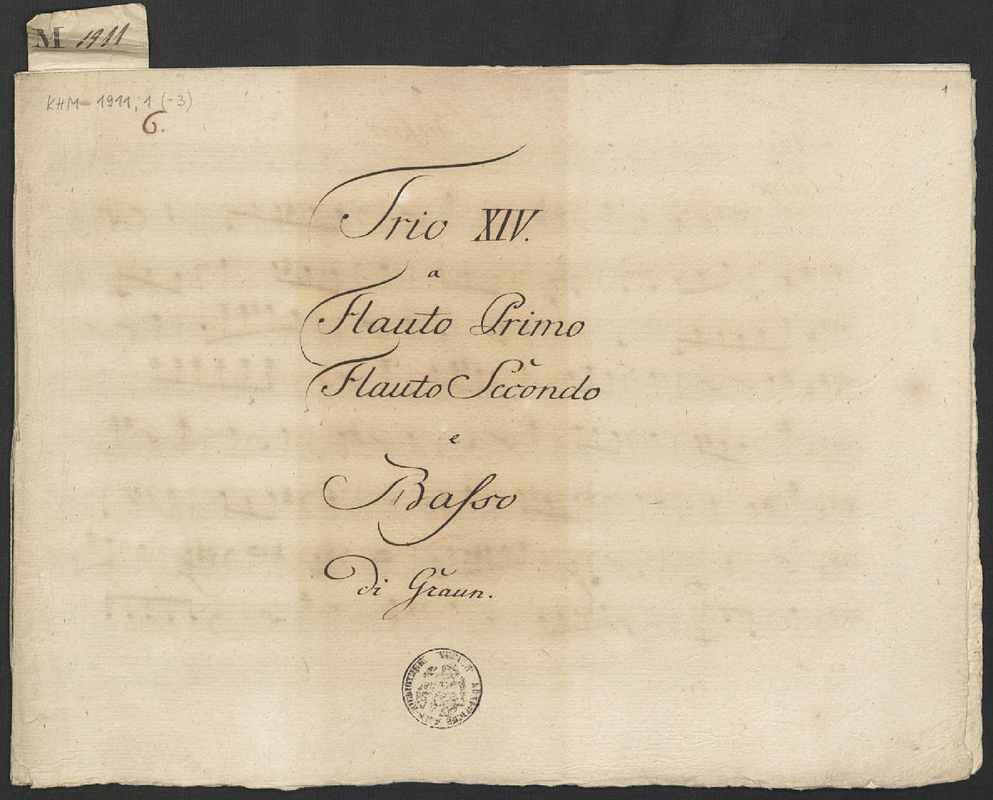 M 1911
KHM 1911, 1 (-3)
1
6.
Trio XIV.
a
Flauto Primo
Flauto Secondo
e
Basso
di Graun.